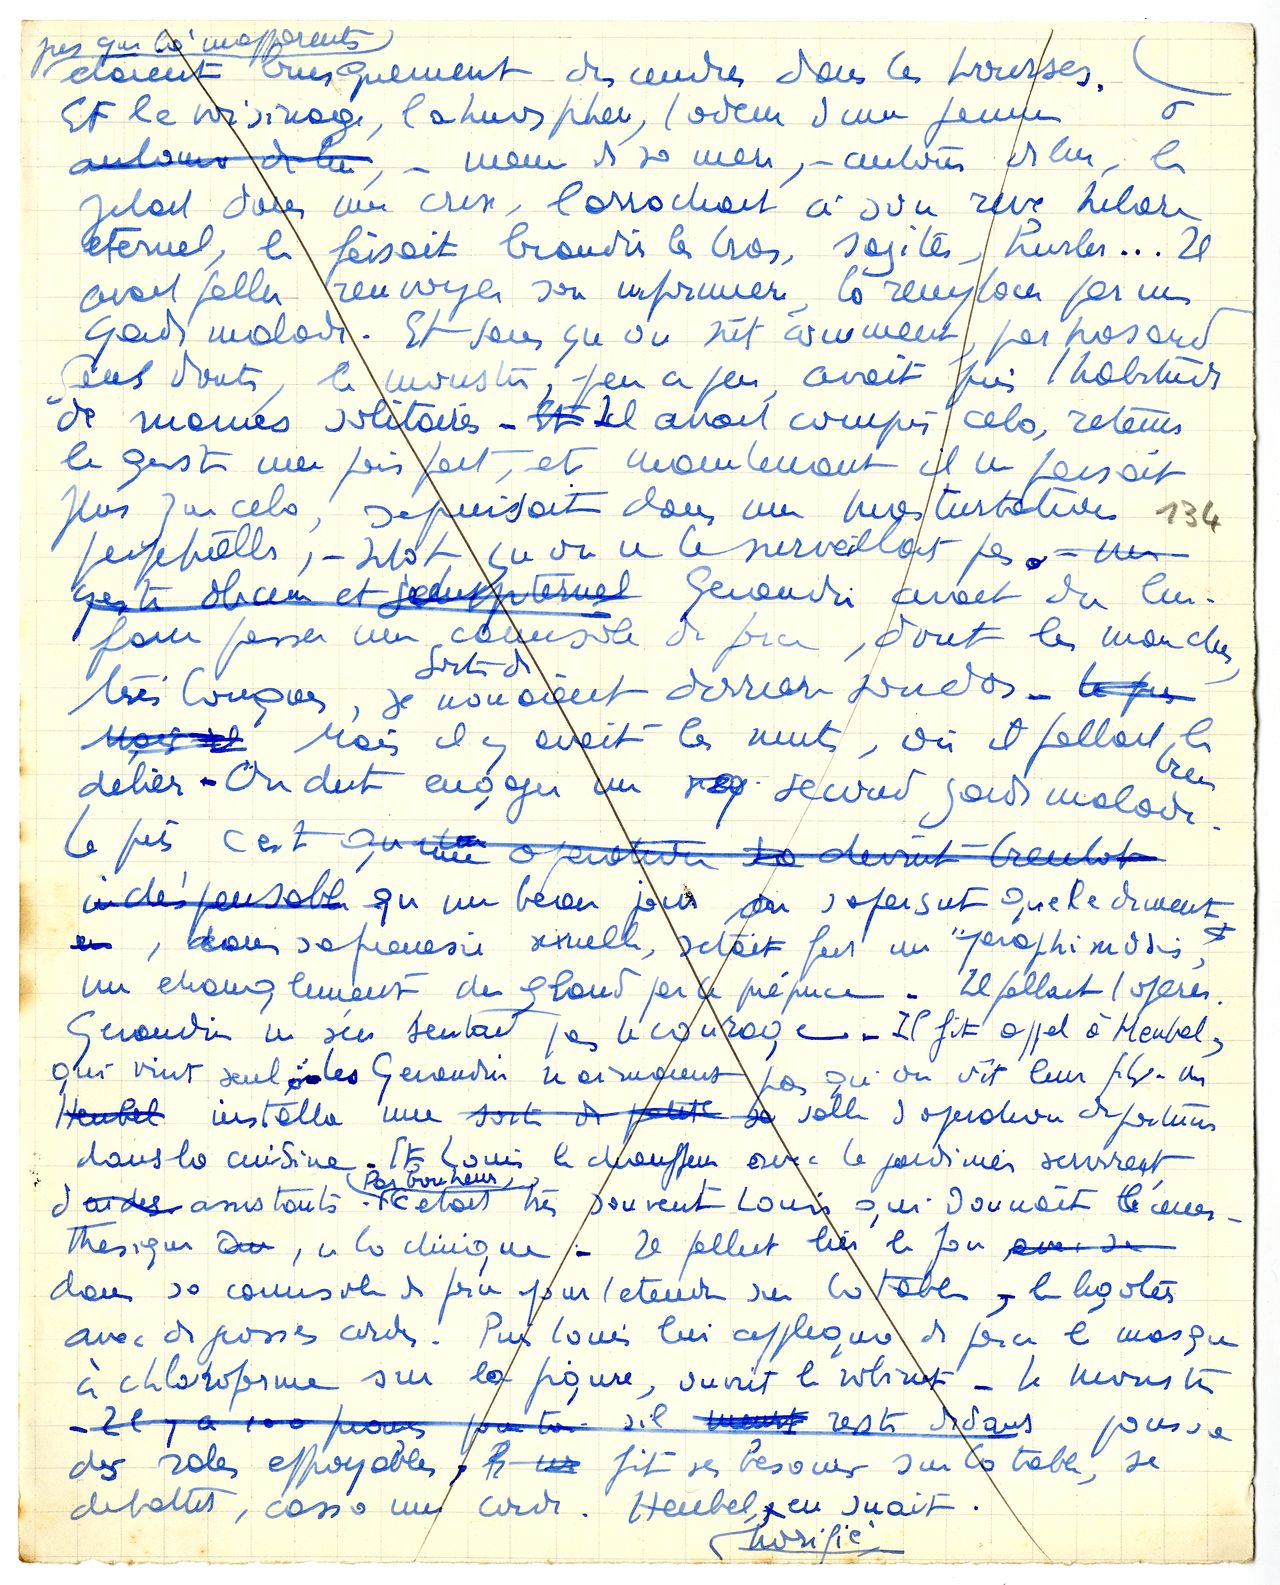 jusque là inapparents
étaient brusquement descendues dans les bourses.
Et le voisinage, l'atmosphère, l'odeur d'une femme
autour de lui, - même de sa mère, - autour de lui, le
jetait dans une crise, l'arrachait à son rêve hilare
éternel, le faisait brandir les bras, s'agiter, hurler... Il
avait fallu renvoyer son infirmière, la remplacer par un
garde malade. Et sans qu'on sût comment, par hasard
sans doute, le monstre, peu à peu, avait pris l'habitude
de manies solitaires - Et Il avait compris cela, retenu
le geste une fois fait, et maintenant il ne faisait
plus que cela, s'épuisait dans une masturbation 134
perpétuelle, - sitôt qu'on ne le surveillait pas. - un
geste obscur et Géraudin avait dû lui
faire passer une camisole de force, dont les manches,
sorte de
très longues, se nouaient derrière son dos - le pis
Mais il Mais il y avait les nuits, où il fallait le
bien
délier - On dut engager un second garde malade.
Le pis c'est qu'une opération devint bientôt
indispensable qu'un beau jour on s'aperçut que le dément
en, dans sa frénésie sexuelle, s'était fait un "paraphimosis",
un étranglement du gland par le prépuce - Il fallait l'opérer.
Géraudin ne s'en sentait pas le courage - Il fit appel à Heubel,
qui vint seul, les Géraudin n'aimaient pas qu'on vît leur fils - on
Heubel installa une sorte de petite salle d'opération de fortune
dans la cuisine. Et Louis le chauffeur avec le jardinier servirent
Par bonheur,
d'aides assistants. C'était très souvent Louis qui donnait l'anes-
thésique, à la clinique - Il fallut lier le fou avec sa
dans sa camisole de force pour l'étendre sur la table, le ligoter
avec de grosses cordes. Puis Louis lui appliqua de force le masque
à chloroforme sur la figure, ouvrit le robinet - Le monstre
- Il y a 100 s'il reste dedans poussa
des râles effroyables, fit ses besoins sur la table, se
débattit, cassa une corde. Heubel, en suait.
horrifié